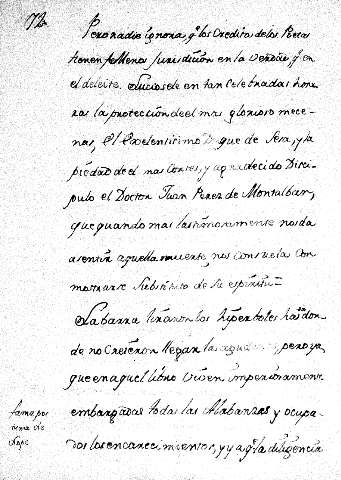 72
Pero nadie ignora, q.e los Creditos de los Poetas
tienen Menos jurisdicion en la verdad, q.e en
el deleite. Luciose en tan Celebradas hon
ras la proteccion de el mas glorioso mece-
nas, El Excelentisimo Duque de Sesa, y la
piedad de el mas Cortes, y agradecido Disci-
pulo el Doctor Juan Perez de Montalban,
que quando mas lastimosamente nos da
a sentir aquella muerte, nos consuela con
mostrarse Substituto de su espiritu=
La barra tiraron los hiperboles hasta don-
de no Creieron llegar las, pero ya,
que en aquel libro viven imperiosamente
fama pos
tuma de
Lope
embargadas todas las Alabanzas y ocupa-
dos los encarecimientos, y ya q.e la diligencia